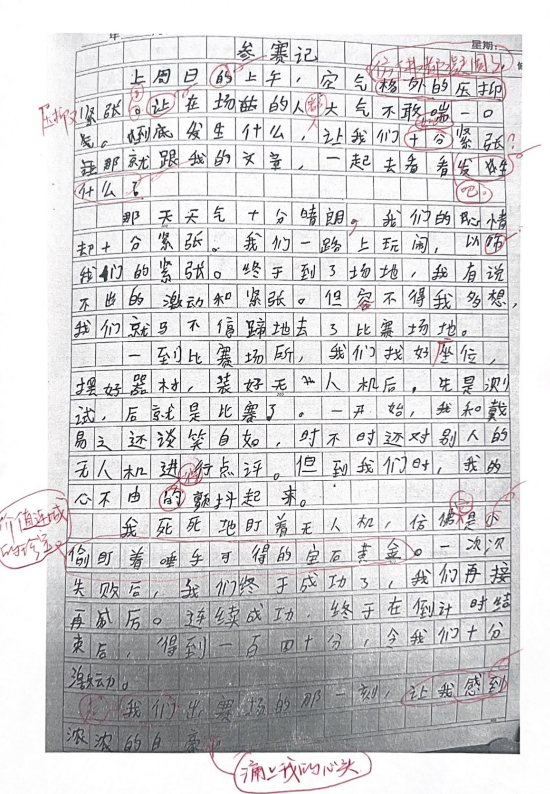 年
星期
参赛记
上周日的上午，空气格外的压抑
压抑又
紧张。让在场的人大气不敢喘一口
都
气。到底发生什么，让我们十分紧张？
那就跟我的文章，一起去看看发生
什么？
吧。
那天天气十分晴朗，我们的心情
却十分紧张。我们一路上玩闹，以
我们的紧张。终于到了场地，我有说
不出的激动和紧张。但容不得我多想，
我们就马不停蹄地去了比赛场地。
一到比赛场所，我们找好座位，
摆好器材，装好无人机后。先是测
试，后就是比赛了。一开始，我和戴
易之还谈笑自如，时不时还对别人的
无人机进行点评。但到我们时，我的
心不由的颤抖起来。
价值连城
的珍宝
我死死地盯着无人机，仿佛是小
偷盯着唾手可得的宝石黄金。一次次
失败后，我们终于成功了，我们再接
再厉后。连续成功，终于在倒计时结
束后，得到一百四十分，令我们十分
激动。
我们出赛场的那一刻，让我感到
浓浓的自豪
涌上我的心头